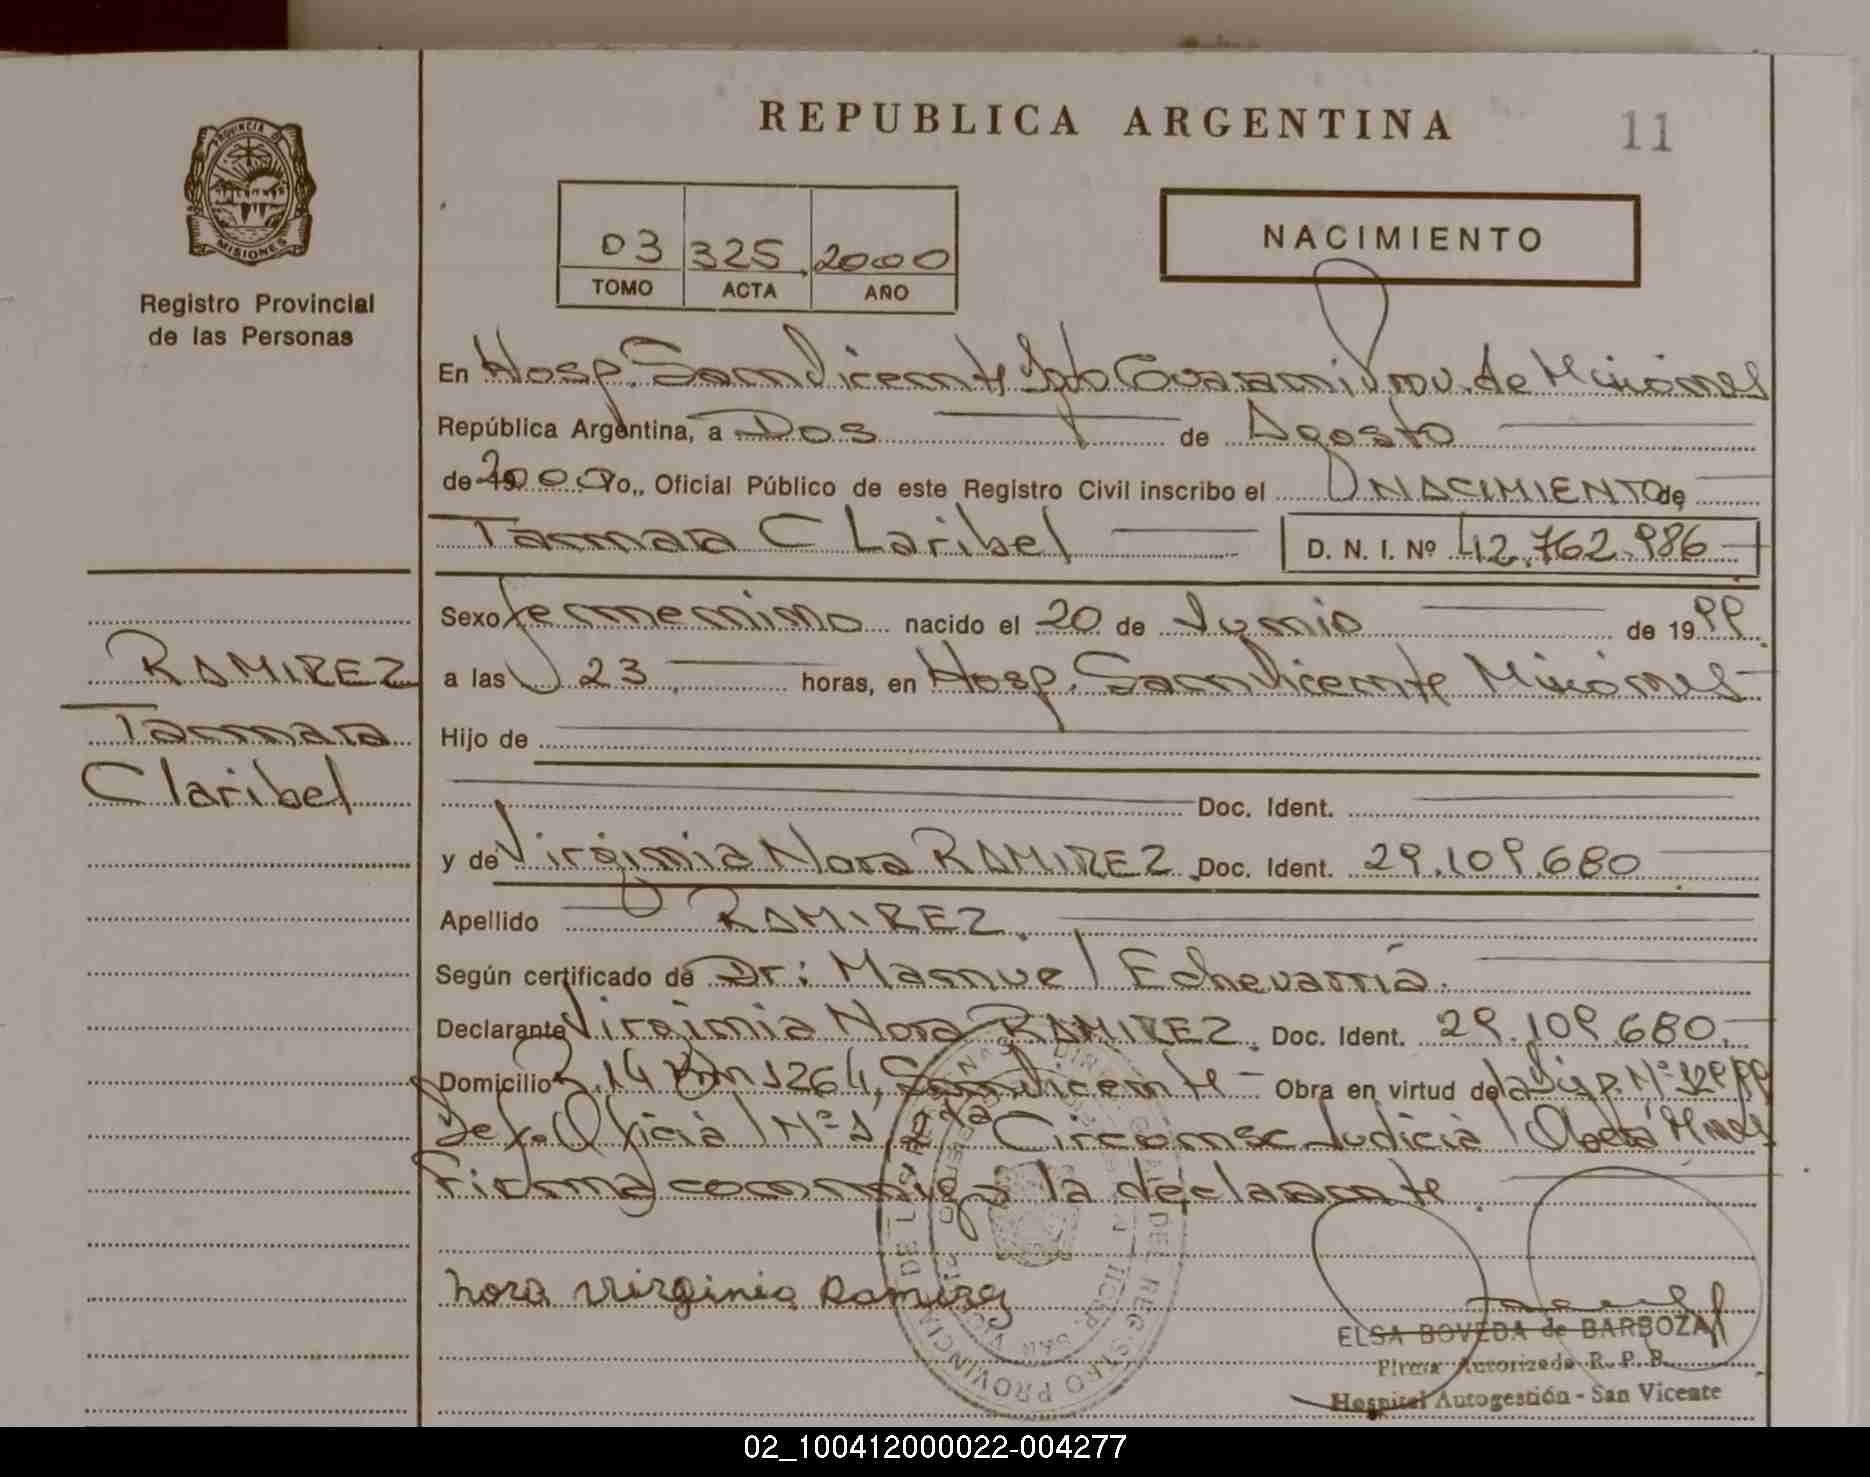 REPUBLICA ARGENTINA
11
PROVINCIA DE
MISIONES
Registro Provincial
de las Personas
03 325 2000
TOMO ACTA AÑO
NACIMIENTO
En Hosp. San Vicente Dpto Guarani Prov. de Misiones
República Argentina, a Dos de Agosto
de 2000 Yo,, Oficial Público de este Registro Civil inscribo el NACIMIENTO de
Tamara Claribel
D. N. I. Nº 42.762.986
Sexo femenino nacido el 20 de Junio de 1999
a las 23 horas, en Hosp. San Vicente Misiones
RAMIREZ
Tamara
Claribel
Hijo de
Doc. Ident.
y de Virginia Nora RAMIREZ Doc. Ident. 29.109.680
Apellido RAMIREZ
Según certificado de Dr: Manuel Echevarría.
Declarante Virginia Nora RAMIREZ. Doc. Ident. 29.109.680.
Domicilio 14 Km 1264, San Vicente - Obra en virtud de la Disp. Nº
Def. Oficial Nº 1, 2da Circunsc Judicial Oberá Mnes
Firma conmigo la declarante.
Nora Virginia Ramirez
ELSA BOVEDA de BARBOZA
Firma Autorizada R. P. P.
Hospital Autogestión - San Vicente
02_100412000022-004277